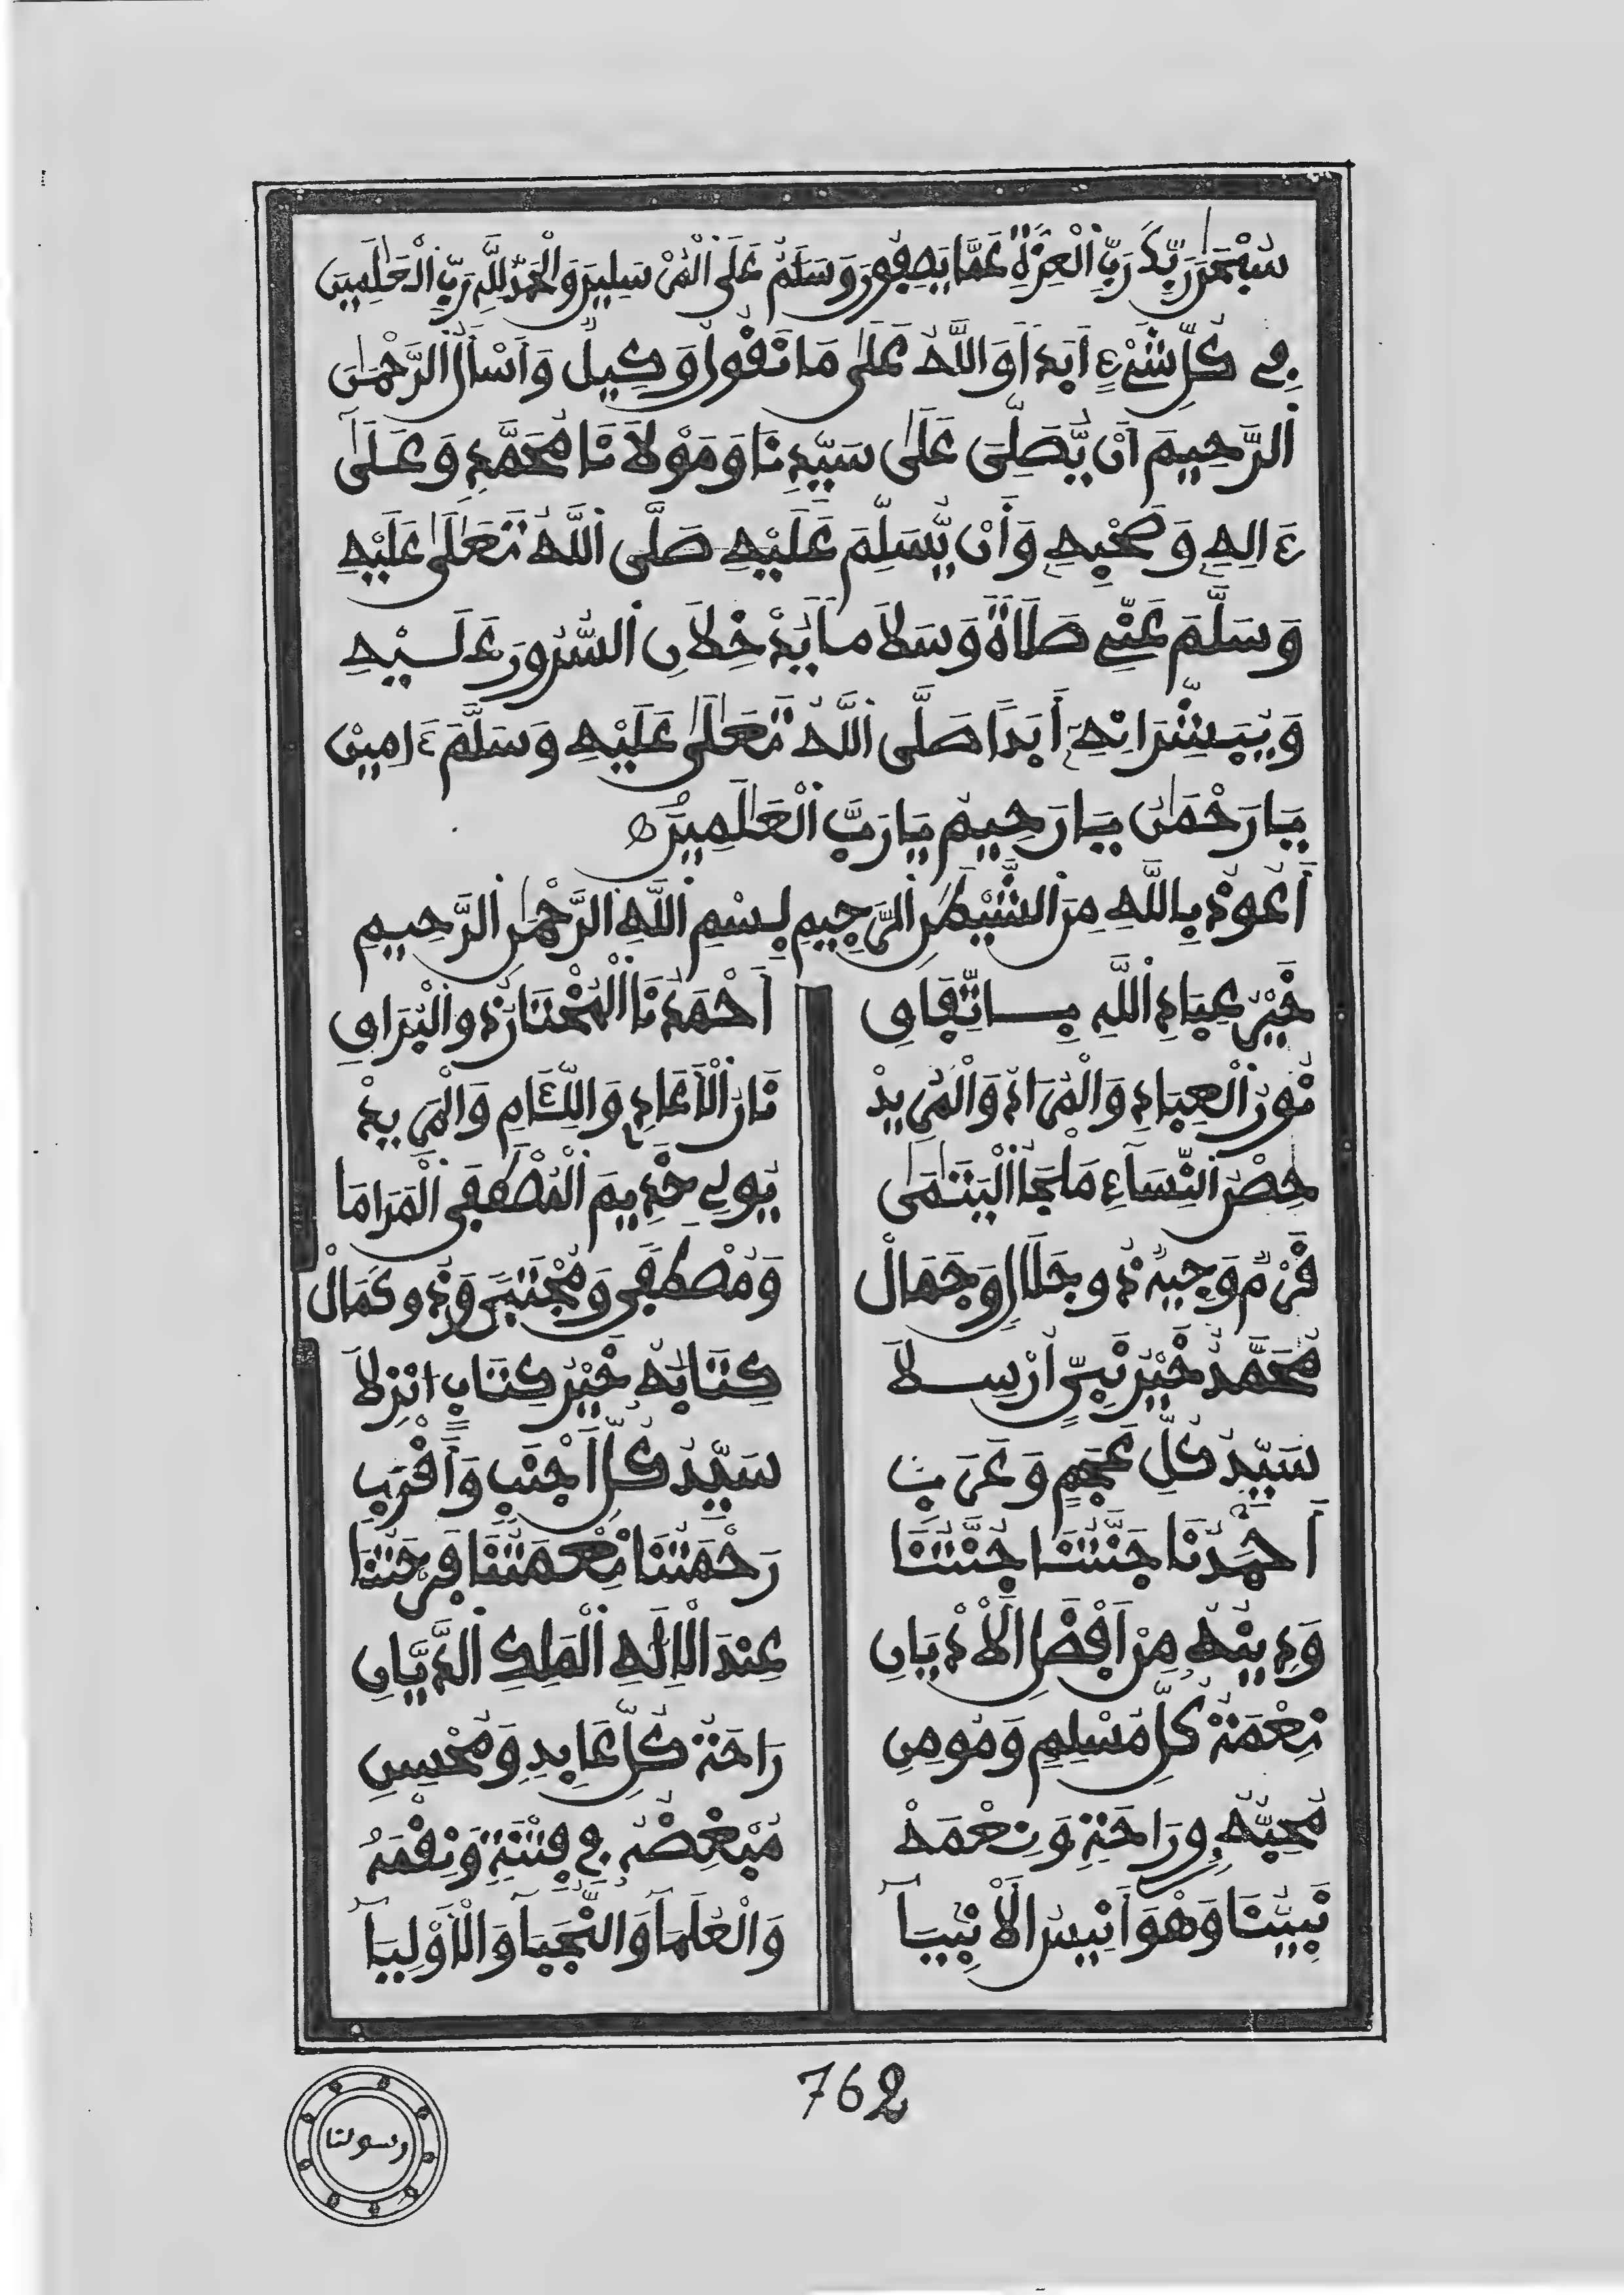 سُبْحَٰنَ رَبِّكَ رَبِّ الْعِزَّةِ عَمَّا يَصِفُونَ وَسَلَٰمٌ عَلَى الْمُرْسَلِينَ وَالْحَمْدُ لِلَّهِ رَبِّ الْعَٰلَمِينَ
فِي كُلِّ شَيْءٍ أَبَدًا وَاللَّهُ عَلَىٰ مَا نَقُولُ وَكِيلٌ وَأَسْأَلُ الرَّحْمَٰنَ
الرَّحِيمَ أَنْ يُّصَلِّيَ عَلَىٰ سَيِّدِنَا وَمَوْلَانَا مُحَمَّدٍ وَعَلَىٰ
ءَالِهِ وَصَحْبِهِ وَأَنْ يُّسَلِّمَ عَلَيْهِ صَلَّى اللَّهُ تَعَالَىٰ عَلَيْهِ
وَسَلَّمَ عَنِّي صَلَاةً وَسَلَامًا يُدْخِلَانِ السُّرُورَ عَلَيْهِ
وَيُبَشِّرَانِهِ أَبَدًا صَلَّى اللَّهُ تَعَالَىٰ عَلَيْهِ وَسَلَّمَ ءَامِين
يَا رَحْمَٰنُ يَا رَحِيمُ يَا رَبَّ الْعَٰلَمِينَ
أَعُوذُ بِاللَّهِ مِنَ الشَّيْطَٰنِ الرَّجِيمِ بِسْمِ اللَّهِ الرَّحْمَٰنِ الرَّحِيمِ
خَيْرُ عِبَادِ اللَّهِ بِاتِّفَاقِ أَحْمَدُنَا الْمُخْتَارُ ذُو الْبُرَاقِ
نُورُ الْعِبَادِ وَالْمُرَادُ وَالْمُرِيدْ نَارُ الْأَعَادِ وَاللِّئَامِ وَالْمَرِيدْ
حِصْنُ النِّسَاءِ مَلْجَأُ الْيَتَٰمَىٰ يُولِي خَدِيمَ الْمُصْطَفَى الْمَرَامَا
قَرْمٌ وَجِيهٌ ذُو جَلَالٍ وَجَمَالْ وَمُصْطَفًى وَمُجْتَبًى وَذُو كَمَالْ
مُحَمَّدٌ خَيْرُ نَبِيٍّ أُرْسِلَا كِتَابُهُ خَيْرُ كِتَابٍ أُنْزِلَا
سَيِّدُ كُلِّ عَجَمٍ وَعَرَبِ سَيِّدُ كُلِّ أَجْنَبٍ وَأَقْرَبِ
أَحْمَدُنَا جَنَّتُنَا جُنَّتُنَا رَحْمَتُنَا نِعْمَتُنَا فَرْحَتُنَا
وَدِينُهُ مِنْ أَفْضَلِ الْأَدْيَانِ عِنْدَ الْإِلَٰهِ الْمَلِكِ الدَّيَّانِ
نِعْمَةُ كُلِّ مُسْلِمٍ وَمُومِنِ رَاحَةُ كُلِّ عَابِدٍ وَمُحْسِنِ
مُحِبُّهُ فِي رَاحَةٍ وَنِعْمَهْ مُبْغِضُهُ فِي فِتْنَةٍ وَنِقْمَهْ
نَبِيُّنَا وَهْوَ أَنِيسُ الْأَنْبِيَا وَالْعُلَمَا وَالنُّجَبَا وَالْأَوْلِيَا
762
رسولنا